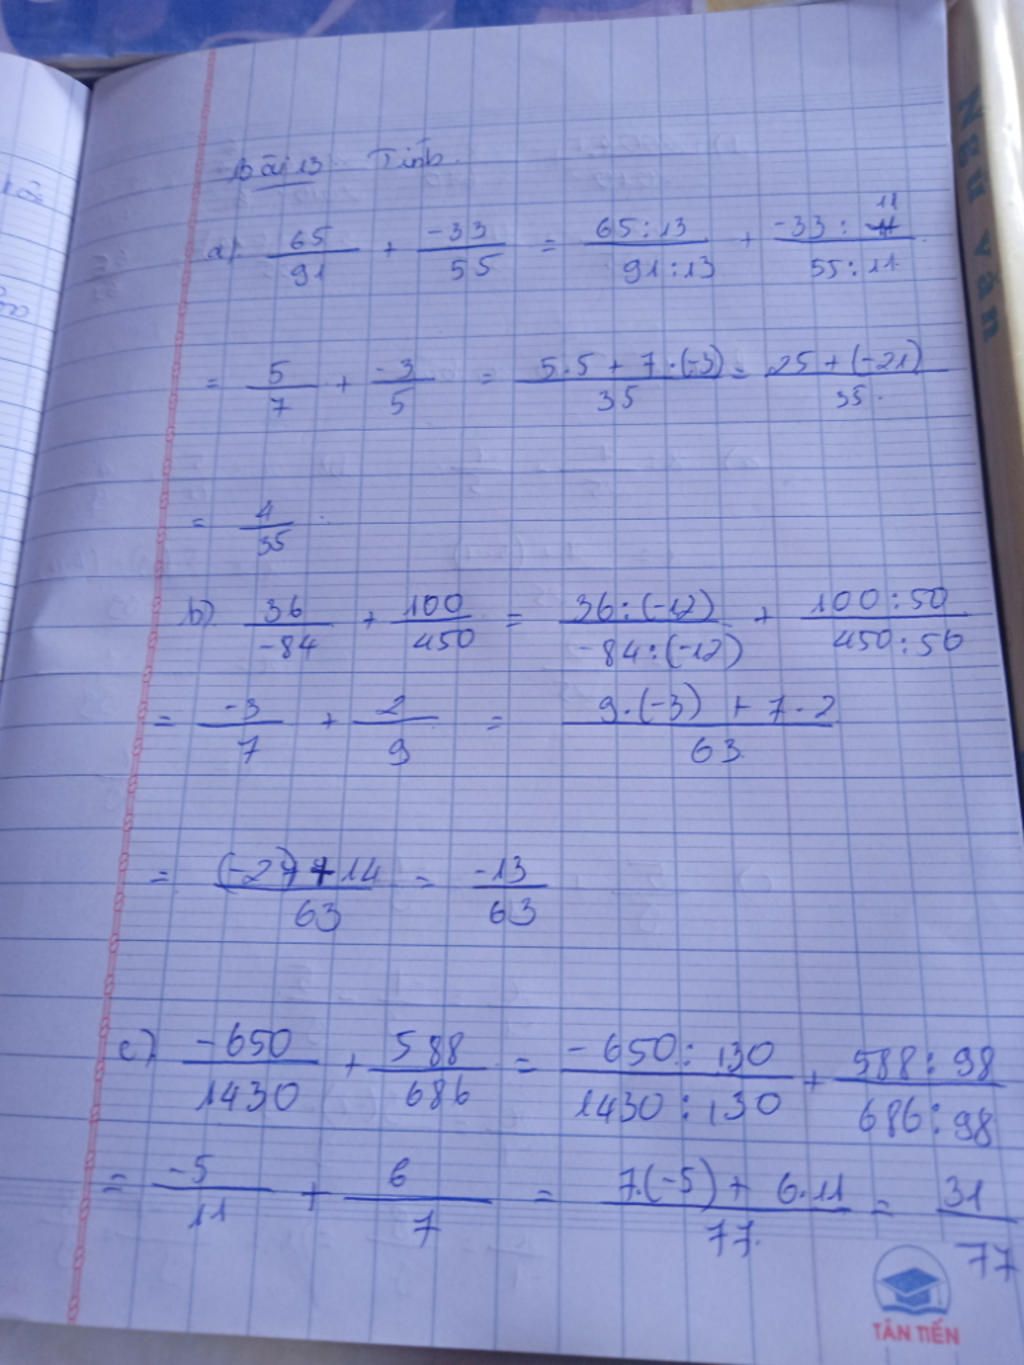 Bài 13 Tính.
a) 65/91 + -33/55 = 65:13/91:13 + -33:11/55:11
= 5/7 + -3/5 = 5.5 + 7.(-3)/35 = 25 + (-21)/35.
= 4/35.
b) 36/-84 + 100/450 = 36:(-12)/-84:(-12) + 100:50/450:50
= -3/7 + 2/9 = 9.(-3) + 7.2/63
= (-27) + 14/63 = -13/63
c) -650/1430 + 588/686 = -650:130/1430:130 + 588:98/686:98
= -5/11 + 6/7 = 7.(-5) + 6.11/77. = 31/77
TÂN TIẾN